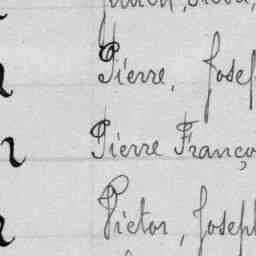 Pierre, Josef
Pierre Franço
Victor, Joseph